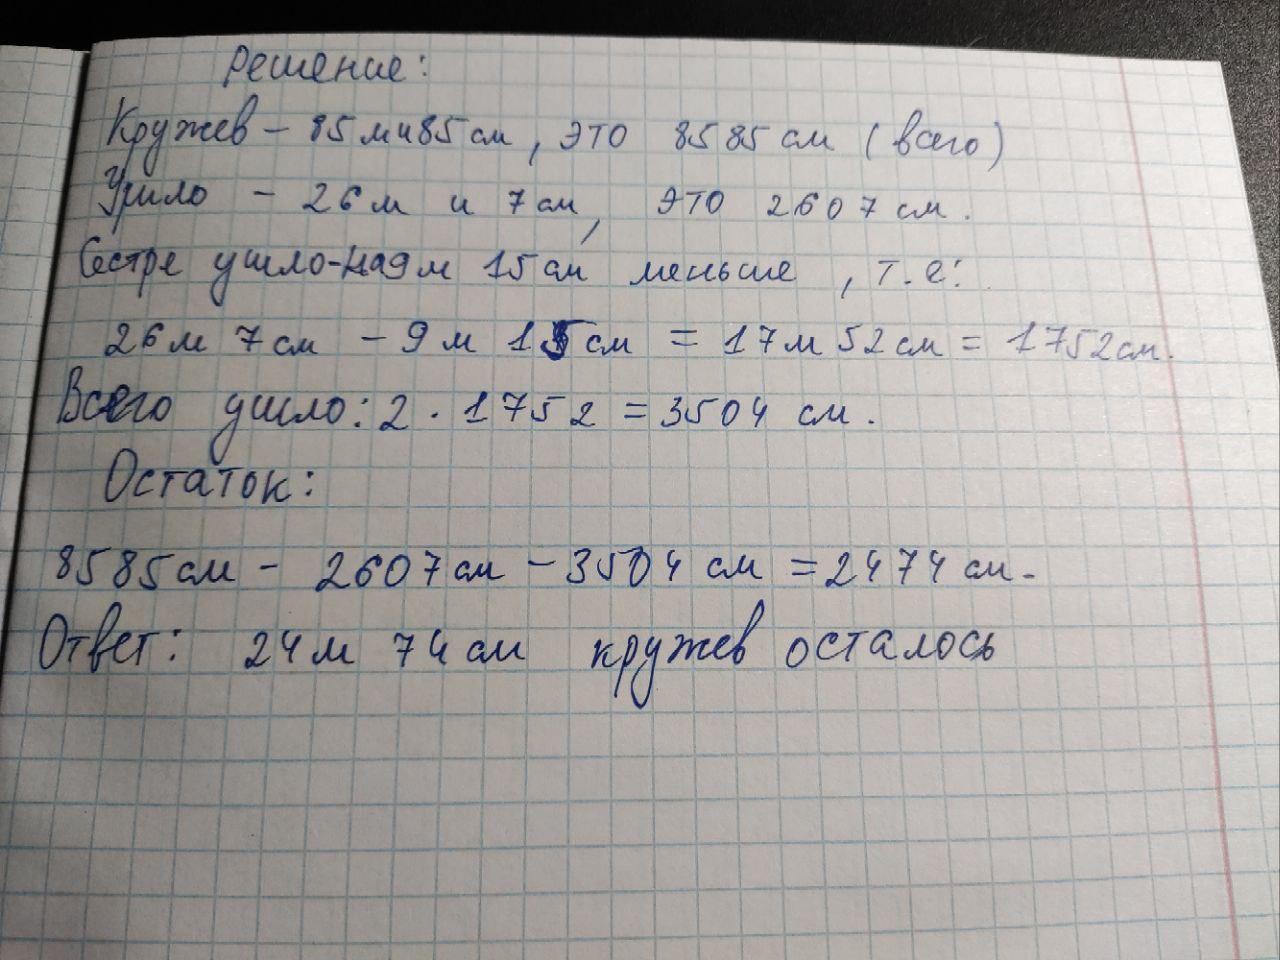 Решение:
Кружев - 85 м и 85 см, это 8585 см (всего)
Ушло - 26 м и 7 см, это 2607 см.
Сестре ушло - на 9 м 15 см меньше, т.е:
26 м 7 см - 9 м 15 см = 17 м 52 см = 1752 см.
Всего ушло: 2 · 1752 = 3504 см.
Остаток:
8585 см - 2607 см - 3504 см = 2474 см.
Ответ: 24 м 74 см кружев осталось